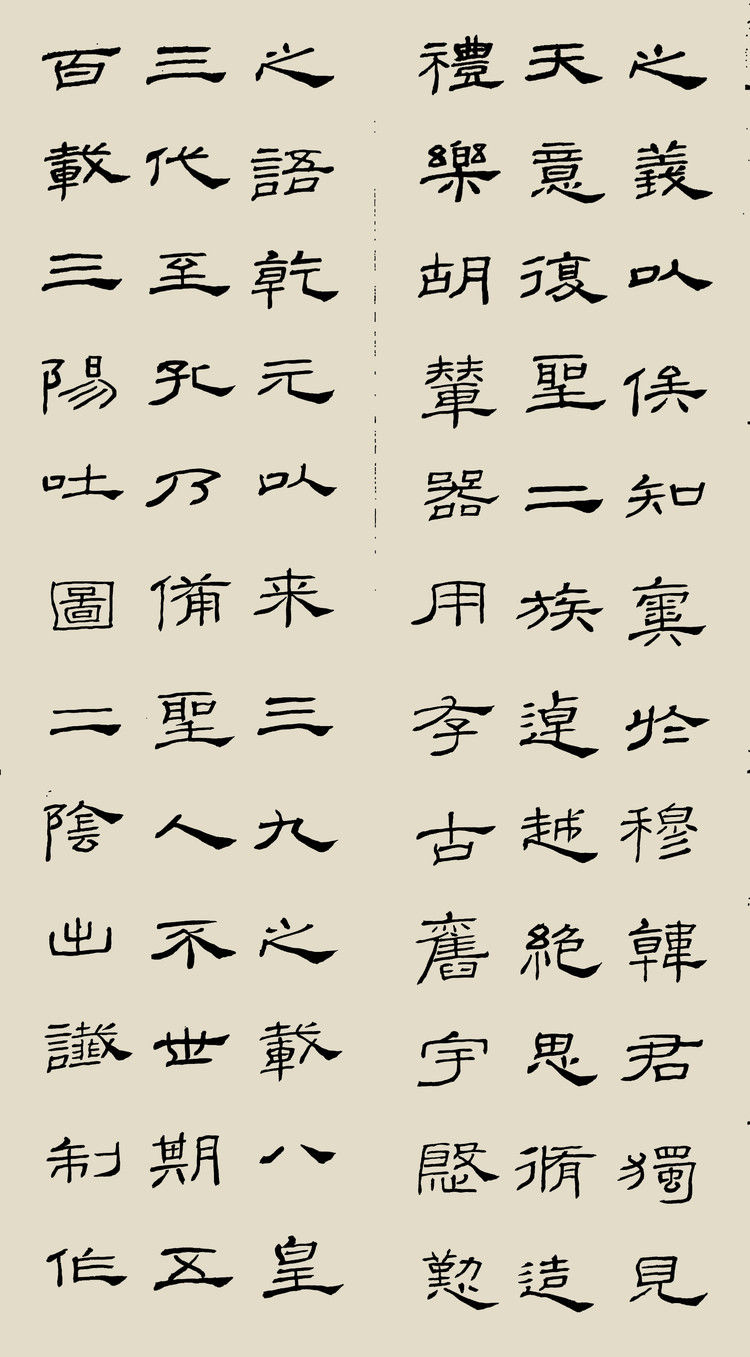 之義以俟知奧於穆韓君獨見
天意復聖二族逴越絕思脩造
禮樂胡輦器用存古舊宇慇懃
之語乾元以来三九之載八皇
三代至孔乃備聖人不世期五
百載三陽吐圖二陰出讖制作